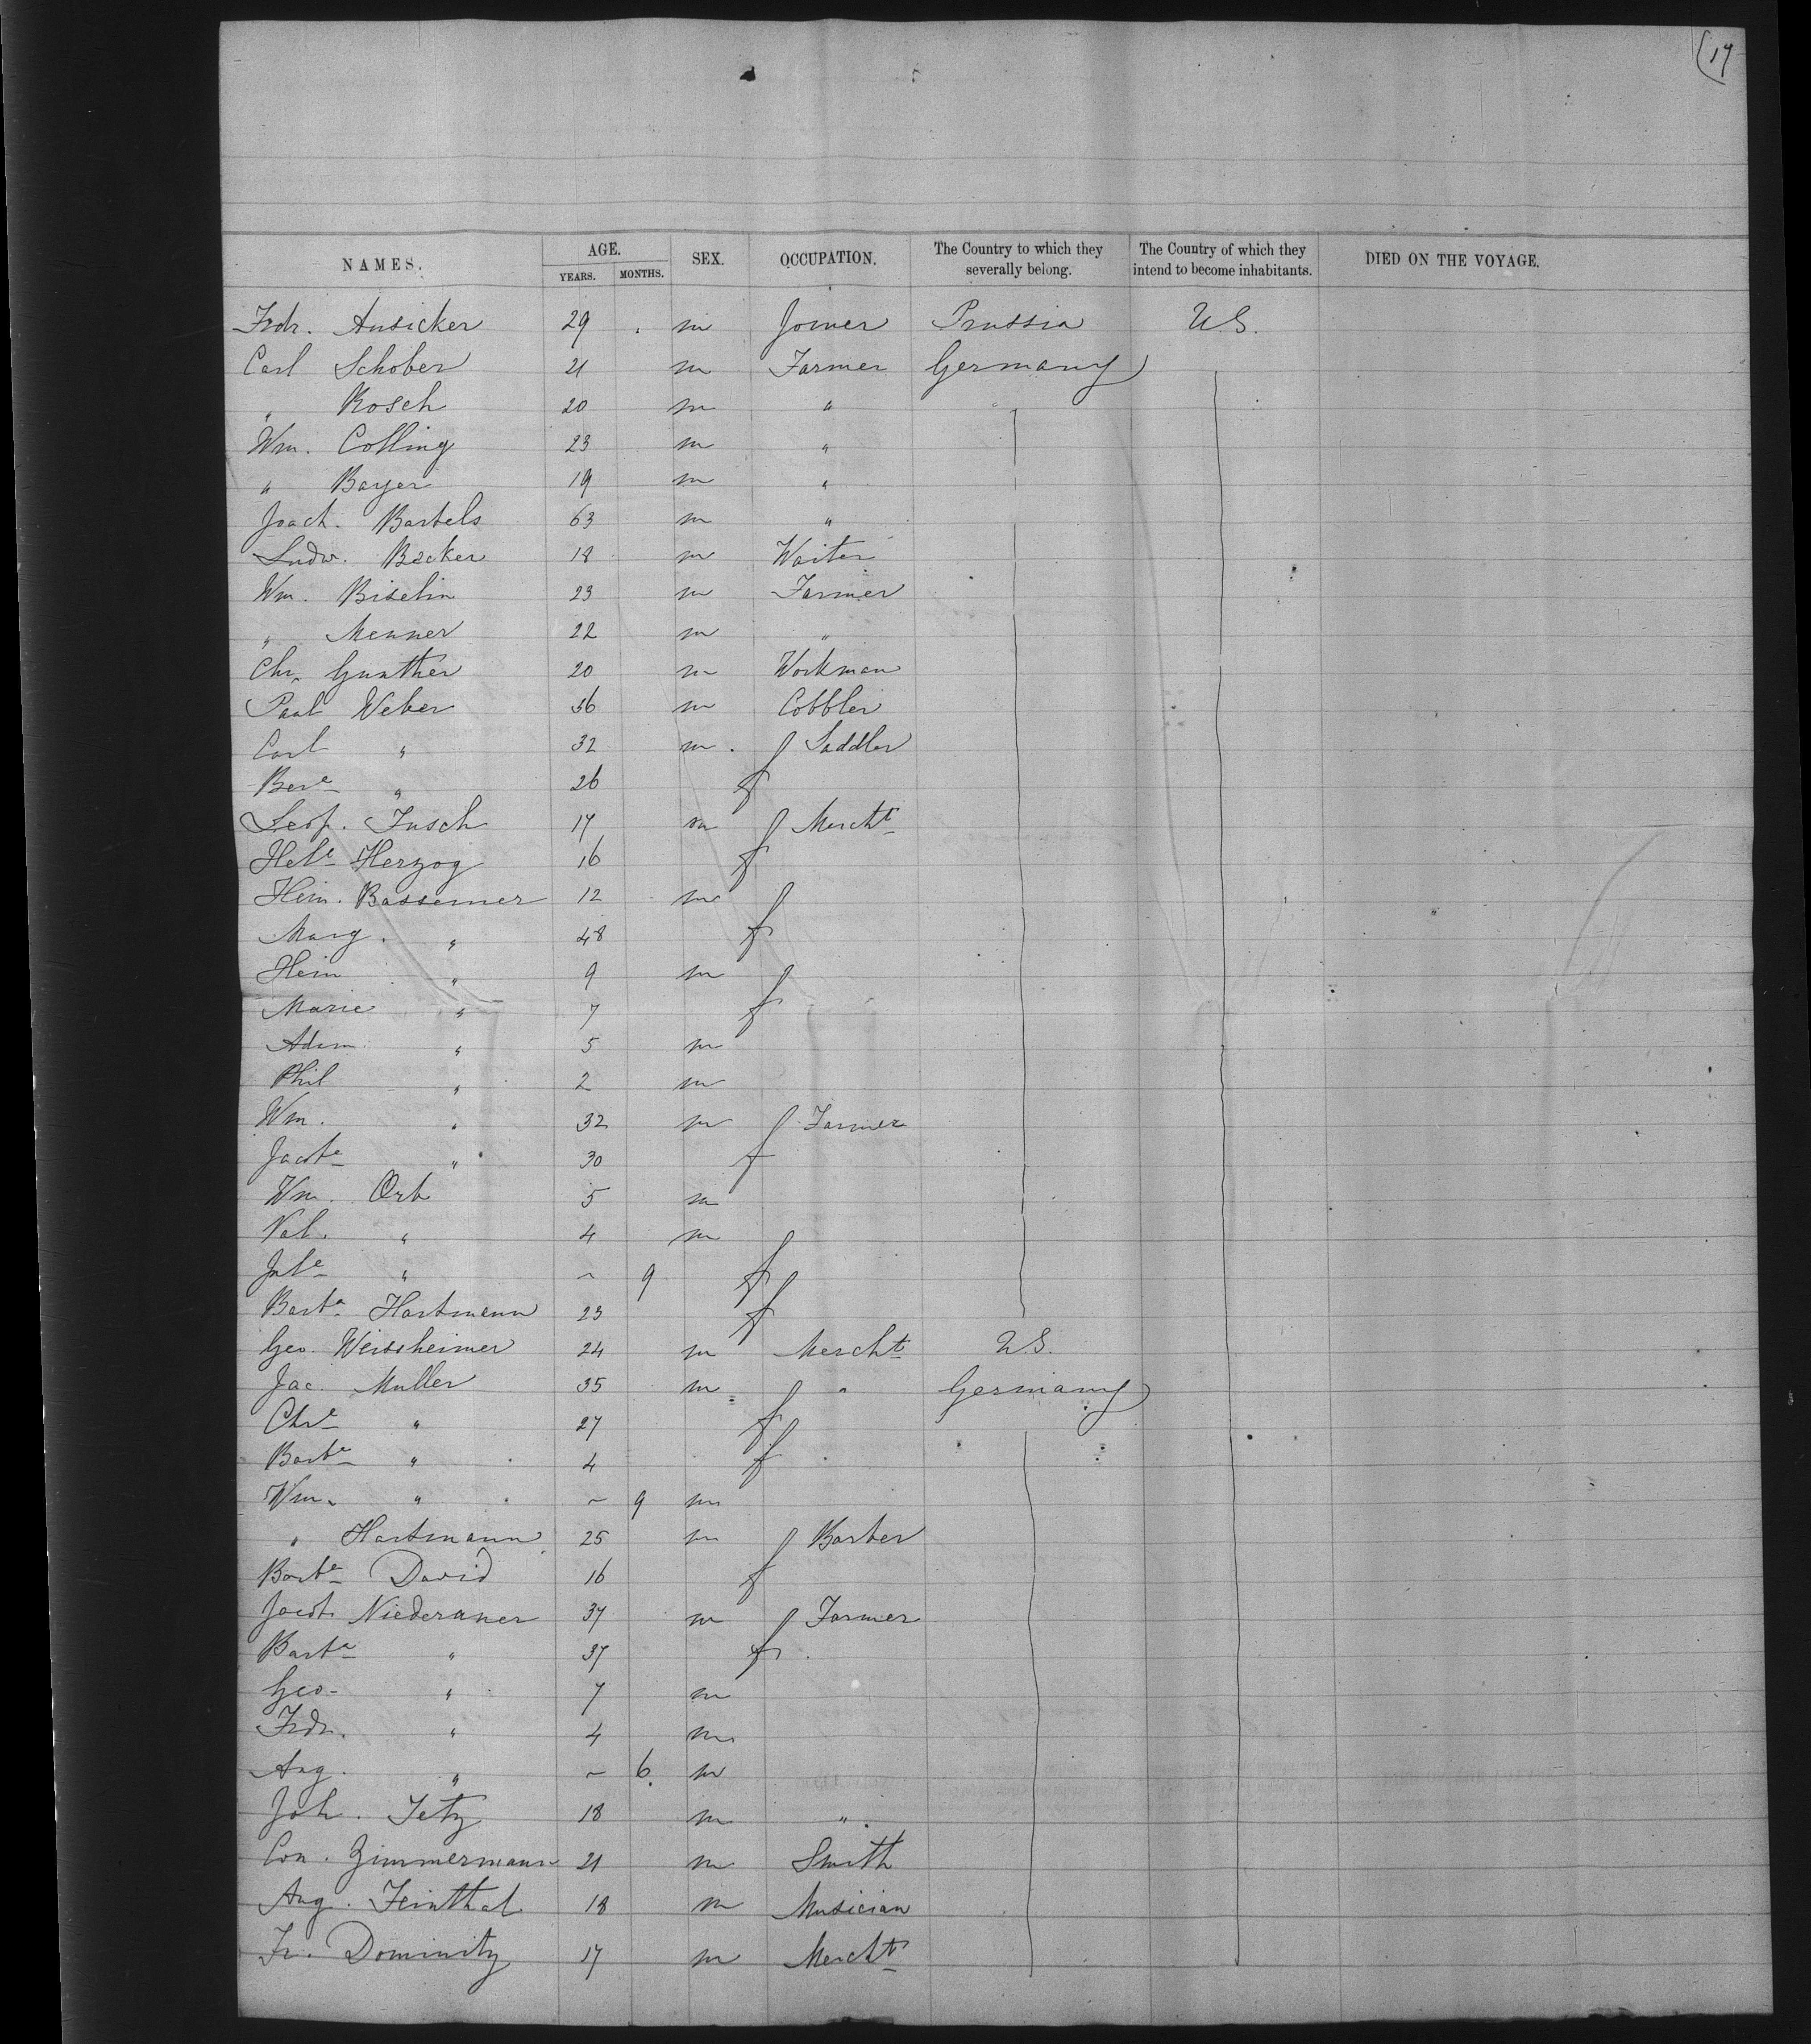 (17
NAMES. AGE. YEARS. MONTHS. SEX. OCCUPATION. The Country to which they severally belong. The Country of which they intend to become inhabitants. DIED ON THE VOYAGE.
Frdr. Ansicker 29 m Joiner Prussia U.S.
Carl Schober 21 m Farmer Germany
" Bosch 20 m "
Wm. Colling 23 m "
" Bayer 19 m "
Joach. Bartels 63 m "
Ludw. Becker 18 m Waiter
Wm. Biselin 23 m Farmer
" Menner 22 m "
Chr. Gunther 20 m Workman
Paul Weber 36 m Cobbler
Carl " 32 m. Saddler
Bere " 26 f
Leop. Fusch 17 m Mercht
Hele Herzog 16 f
Hein. Bassemer 12 m
Marg. " 48 f
Hein " 9 m
Marie " 7 f
Adam " 5 m
Phil " 2 m
Wm. " 32 m Farmer
Jacobe " 30 f
Wm. Orb 5 m
Val. " 4 m
Jule " ~ 9 f
Barba Hartmann 23 f
Geo. Weissheimer 24 m Mercht U.S.
Jac. Muller 35 m " Germany
Chre " 27 f
Barba " 4 f
Wm. " ~ 9 m
" Hartmann 25 m Barber
Barba David 16 f
Jacob Niederauer 37 m Farmer
Barba " 37 f
Geo- " 7 m
Frdr. " 4 m
Aug. " ~ 6 m
Joh. Tetz 18 m "
Con. Zimmermann 21 m Smith
Aug. Feinthal 18 m Musician
Fr. Dominitz 17 m Mercht